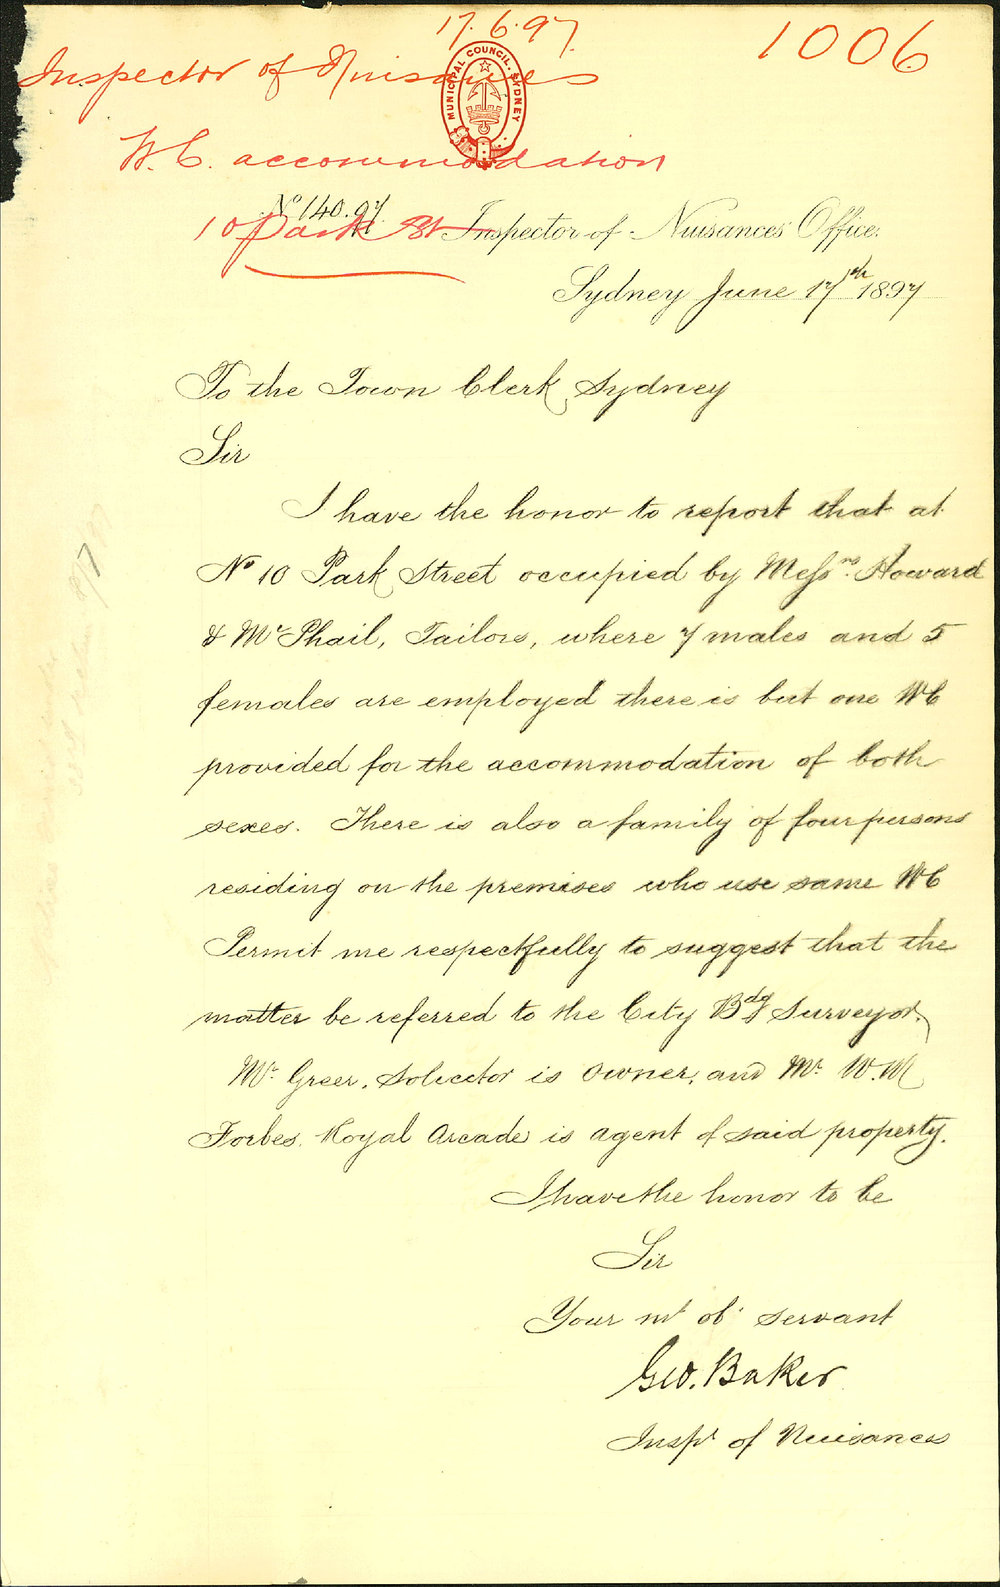 17.6.97.
1006
Inspector of Nuisances
MUNICIPAL COUNCIL. SYDNEY
W.C. accommodation
No 140.97
10 Park St
Inspector of Nuisances Office.
Sydney June 17th 1897
To the Town Clerk, Sydney
Sir
I have the honor to report that at
No 10 Park Street occupied by Messrs. Howard
& Mc Phail, Tailors, where 7 males and 5
females are employed there is but one WC
provided for the accommodation of both
sexes. There is also a family of four persons
residing on the premises who use same WC
Permit me respectfully to suggest that the
matter be referred to the City Bdg Surveyor.
Mr. Greer, Solicitor is owner, and Mr. W.M
Forbes. Royal Arcade is agent of said property.
I have the honor to be
Sir
Your mt. ob. servant
Geo. Baker
Inspr of Nuisances